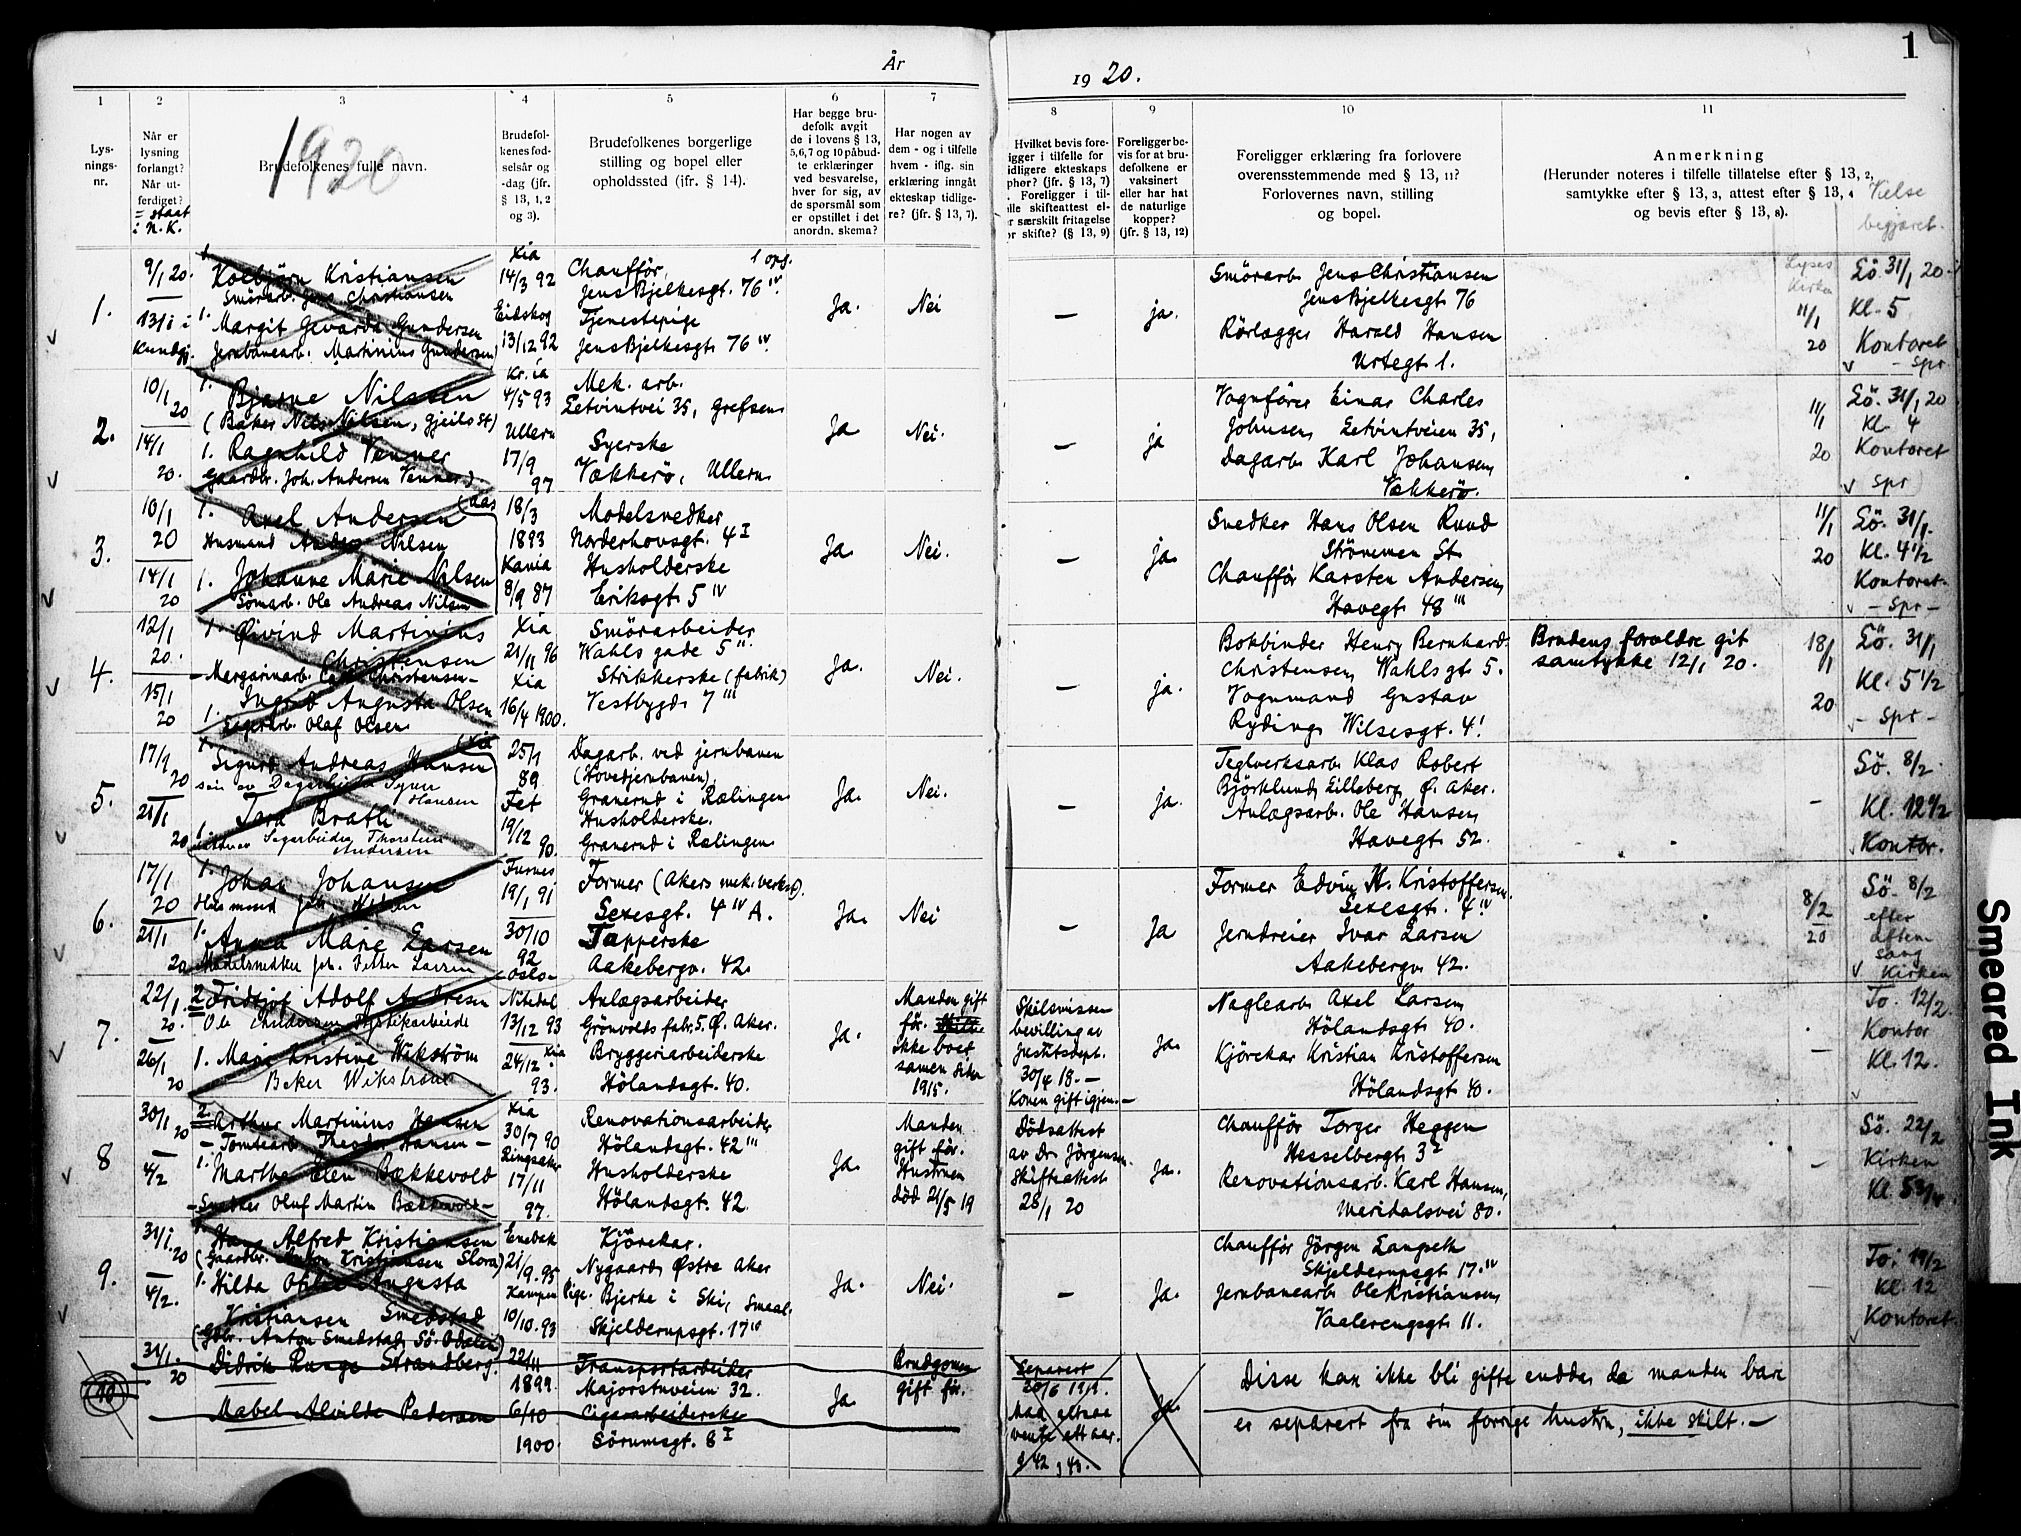 År
1920.
1
1920
1
Lys-
nings-
nr.
2
Når er
lysning
forlangt?
Når ut-
ferdiget?
= staat
i N. K.
3
Brudefolkenes fulle navn.
4
Brudefol-
kenes fød-
selsår og
-dag (jfr.
§ 13, 1, 2
og 3).
5
Brudefolkenes borgerlige
stilling og bopel eller
opholdssted (jfr. § 14).
6
Har begge bru-
defolk avgit
de i lovens § 13,
5,6,7 og 10 påbud-
te erklæringer
ved besvarelse,
hver for sig, av
de spørsmål som
er opstillet i det
anordn. skema?
7
Har nogen av
dem - og i tilfelle
hvem - iflg. sin
erklæring inngått
ekteskap tidlige-
re? (jfr. § 13, 7).
8
Hvilket bevis fore-
igger i tilfelle for
idligere ekteskaps
phør? (jfr. § 13, 7)
. Foreligger i til-
lle skifteattest el-
r særskilt fritagelse
or skifte? (§ 13, 9)
9
Foreligger be-
vis for at bru-
defolkene er
vaksinert
eller har hat
de naturlige
kopper?
(jfr. § 13, 12)
10
Foreligger erklæring fra forlovere
overensstemmende med § 13, 11?
Forlovernes navn, stilling
og bopel.
11
Anmerkning
(Herunder noteres i tilfelle tillatelse efter § 13, 2,
samtykke efter § 13, 3, attest efter § 13, 4
og bevis efter § 13, 8).
Vielse
begjæret.
1.
9/1 20.
13/1 i
Kundgj.
1. Kolbjørn Kristiansen
Smörarb. Jens Christiansen
1. Margit Gundersen
Jernbanearb. Martinius Gundersen
Xia
14/3 92
Eidskog
13/12 92
Chaufför, 1 opg.
Jens Bjelkesgt. 76 IV.
Tjenestepige
Jens Bjelkesgt. 76 IV.
Ja.
Nei
—
ja.
Smörarb. Jens Christiansen
Jens Bjelkesgt 76
Rörlægger Harald Hansen
Urtegt 1.
Lyses
Kirken
11/1
20
Lö 31/1 20.
Kl. 5
Kontoret
- Spr
2.
10/1
20
14/1
20.
1. Bjarne Nilssen
(Baker Nils Nilsen, Gjeilo St)
1. Ragnhild Venner
Gaardbr. Joh. Andersen Venner.)
Kr.ia
4/5 93
Ullern
17/9
97
Mek. arb.
Betvintvei 35, Grefsen
Syerske
Vækkerö, Ullern
Ja
Nei.
—
ja
Vognfører Einar Charles
Johnsen, Betvintveien 35,
Dagarb. Karl Johansen,
Vækkerö.
11/1
20
Lö. 31/1 20
Kl. 4
Kontoret
Spr
3.
10/1
20
14/1
20
1. Axel Andersen (Aas
Husmand Anders Nilsen
1. Johanne Marie Nilsen
Sömarb. Ole Andreas Nilsen
18/3
1893
Kania
8/9 87
Modelsnedker
Norderhovsgt. 4 I
Husholderske
Eriksgt 5 IV
Ja.
Nei.
—
ja.
Snedker Hans Olsen Ruud
Strömmen St.
Chauffør Karsten Andersen,
Havegt 48 III
11/1
20
Lö. 31/1.
Kl. 4 1/2
Kontoret
- Spr -
4.
12/1
20.
15/1
20
1. Øivind Martinius
Christensen
- Margarinarb. Carl Christensen -
1. Ingrid Augusta Olsen
Sagarb. Olaf Olsen
Xia
21/11 96
Xia
16/4 1900.
Smörarbeider
Wahls gade 5 II.
Strikkerske (fabrik)
Vestbygd. 7 III
Ja.
Nei.
—
ja.
Bokbinder Henry Bernhard
Christensen, Wahls gt 5.
Vognmand Gustav
Ryding, Wilsesgt. 4!
Brudens forældre git
samtykke 12/1 20.
18/1
20
Lö. 31/1
Kl. 5 1/2
- Spr -
5.
17/1
20
21/1
20
1. Sigurd Andreas Hansen (Xia
søn av Dagarbeider Syver
Hansen
1. Tora Bratli
datter av Sagarbeider Thorstein
Andersen
25/1
89
Fet
19/12
90.
Dagarb. ved jernbanen
(Hovedjernbanen),
Granerud i Rælingen
Husholderske.
Granerud i Rælingen
Ja.
Nei.
—
ja.
Teglverksarb. Klas Robert
Björklund, Lilleberg, Ø. Aker.
Anlægsarb. Ole Hansen,
Havegt 52.
—
Sö. 8/2
Kl. 12 1/2
Kontor.
6.
17/1
20
21/1
20
1. Johan Johansen
Husmand Joh. Nilsen
1. Anna Marie Larsen
Modelsnedker Joh. Petter Larsen
Furnes
19/1 91
30/10
92
Oslo
Former (Akers mek. verkst.)
Sexesgt. 4 IV A.
Tapperske
Aakebergv. 42.
Ja.
Nei
—
Ja
Former Edvin H. Kristoffersen.
Sexesgt. 4 IV
Jerndreier Ivar Larsen
Aakebergv. 42.
8/2
20
Sö. 8/2
efter
aften-
sang
Kirken
7.
22/1.
20.
26/1
20
2. Fridtjof Adolf Andresen
Ole Andersen
1. Marie Kristine Wikström
Baker Wikström
Nitedal
13/12 93
24/12 Xia
93.
Anlægsarbeider
Grönvolds fabr. 5. Ø. Aker.
Bryggeriarbeiderske
Hölandsgt. 40.
Ja.
Manden gift
för. Skilt.
ikke boet
samen siden
1915.
Skilsmissen
bevilling av
Justitsdept.
30/4 18. —
Konen gift igjen. —
Ja.
Naglearb. Axel Larsen,
Hölandsgt. 40.
Kjörekar Kristian Kristoffersen
Hölandsgt 40.
—
To. 12/2.
Kontor
Kl. 12.
8
30/1
20
4/2
2. Arthur Martinius Hansen
- Tomtearb. Theodor Hansen -
1. Martha Elen Bækkevold
- Snedker Oluf Martin Bækkevold -
Xia
30/7 90
Ringsaker
17/11
97.
Renovationsarbeider
Hölandsgt. 42 III
Husholderske
Hölandsgt. 42.
Ja.
Manden
gift för.
Hustruen
död 21/5 19
Dödsattest
av Dr. Jörgensen.
Skifteattest
28/1 20
Ja.
Chauffør Torger Heggen
Hesselbergt 3 2
Renovationsarb. Karl Hansen,
Maridalsvei 80.
—
Sö. 22/2
Kirken
Kl. 5 3/4
9.
31/1.
20
4/2.
1. Hans Alfred Kristiansen
(Gaardbr. Anton Kristiansen Slora)
1. Hilda Augusta
Kristiansen Smedstad
(Gdbr. Anton Smedstad, Sö. Odalen)
Enebak
21/9. 95
Kampen
10/10. 93
Kjörekar.
Nygaard, Østre Aker
Pige. Bjerke i Ski, Smaal.
Skjelderupsgt. 17 IV
Ja.
Nei.
—
Ja.
Chauffør Jörgen Langseth
Skjelderupsgt 17. IV
Jernbanearb. Ole Kristiansen,
Vaalerengsgt 11.
To. 19/2
Kl. 12
Kontoret
10
31/1.
20
Didrik Runge Strandberg.
Mabel Alvilde Pedersen
22/11
1899.
6/10
1900.
Transportarbeider
Majorstuveien 32.
Cigararbeiderske
Sörumsgt. 8 I
Ja
Brudgomen
gift för.
Separert
20/6 1919.
Maa altsaa
vente ett aar.
§ 42, 43.
Ja.
Disse kan ikke bli gifte endda, da manden bare
er separert fra sin forrige hustru, ikke skilt. —
Smeared Ink